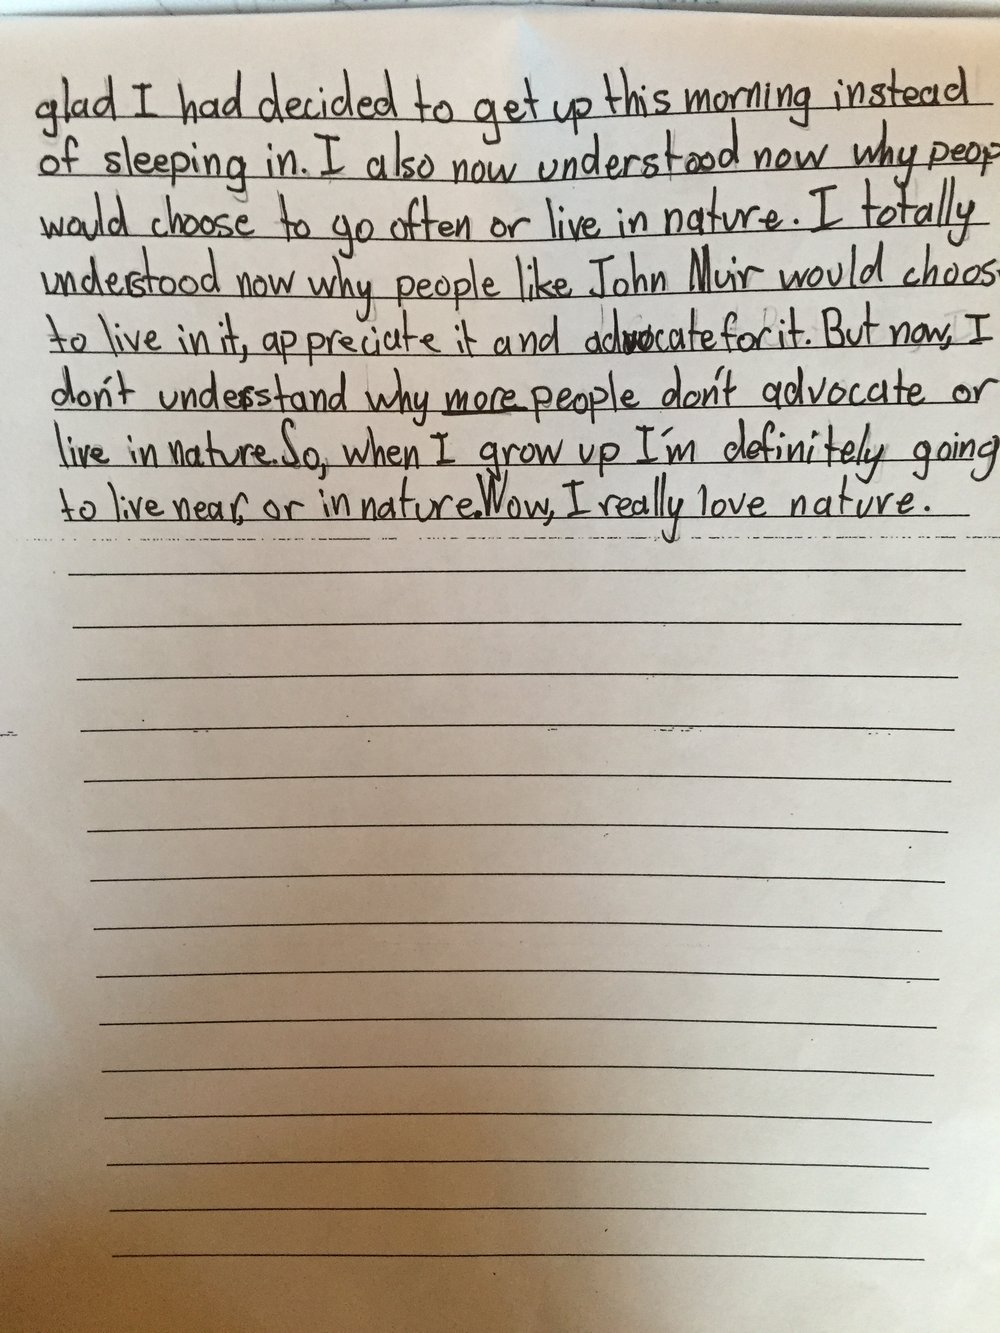 glad I had decided to get up this morning instead
of sleeping in. I also now understood now why peop
would choose to go often or live in nature. I totally
understood now why people like John Muir would choos
to live in it, appreciate it and advocate for it. But now, I
don't understand why more people don't advocate or
live in nature. So, when I grow up I'm definitely going
to live near, or in nature. Wow, I really love nature.